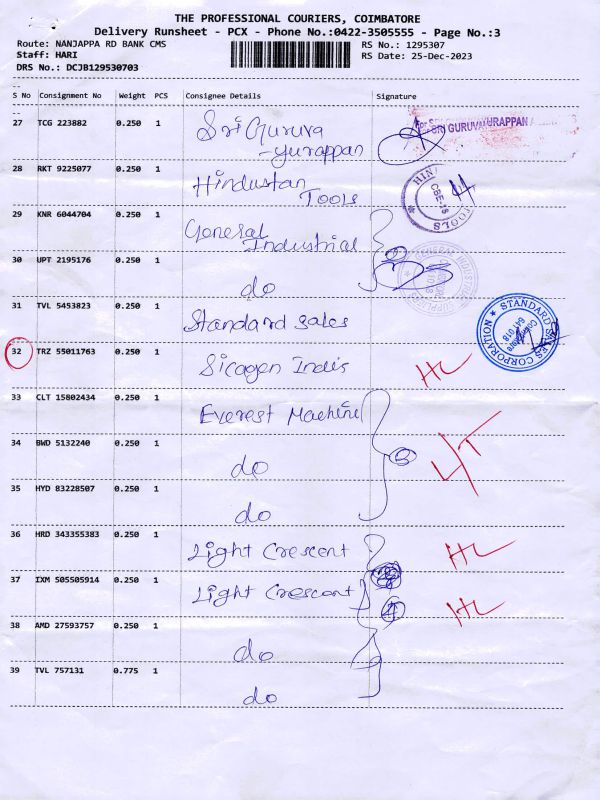 THE PROFESSIONAL COURIERS, COIMBATORE
Delivery Runsheet - PCX - Phone No.:0422-3505555 - Page No.:3
Route: NANJAPPA RD BANK CMS RS No.: 1295307
Staff: HARI RS Date: 25-Dec-2023
DRS No.: DCJB129530703
S No Consignment No Weight PCS Consignee Details Signature
27 TCG 223882 0.250 1 Sri Guruva
-yurappan
For SRI GURUVAYURAPPAN
28 RKT 9225077 0.250 1 Hindustan
Tools
CBE-18
TOOLS
29 KNR 6044704 0.250 1 General
Industrial
30 UPT 2195176 0.250 1 do
GENERAL INDUSTRIAL SUPPLIERS
31 TVL 5453823 0.250 1 Standard Sales
STANDARD SALES CORPORATION
Coimbatore
641 018
32 TRZ 55011763 0.250 1 Sicagen Indis HL
33 CLT 15802434 0.250 1 Everest Machine
34 BWD 5132240 0.250 1 do 3
35 HYD 83228507 0.250 1 do
36 HRD 343355383 0.250 1 Light Crescent HL
37 IXM 505505914 0.250 1 Light Crescent 4 HL
38 AMD 27593757 0.250 1 do
39 TVL 757131 0.775 1 do